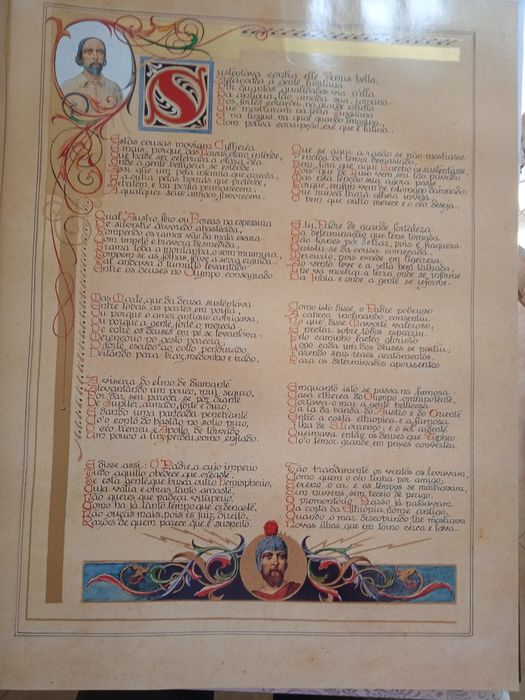 Sustentava contra elle Venus bella,
Affeiçoada á gente lusitana
Por quantas qualidades via n'ella
Da antigua, tão amada sua, romana;
Nos fortes corações, na grande estrella
Que mostraram na terra tingitana
E na lingua, na qual quando imagina,
Com pouca corrupção crê que é latina.
Estas cousas moviam Cytherea
E mais, porque das Parcas claro entende,
Que hade ser celebrada a clara dea
Onde a gente belligera se estende.
Assi que um pela infamia que arreceia,
E outro pelas honras que pretende,
Debatem, e na porfia permanecem;
A qualquer seus amigos favorecem.
Qual Austro fero ou Boreas na espessura
De silvestre arvoredo abastecida,
Rompendo os ramos vão da mata escura
Com impeto e braveza desmedida;
Brama toda a montanha, o som murmura,
Rompem-se as folhas, ferve a serra erguida:
Tal andava o tumulto levantado
Entre os deuses no Olympo consagrado.
Mas Marte, que da deusa sustentava
Entre todos as partes em porfia,
Ou porque o amor antiguo o obrigava,
Ou porque a gente forte o merecia,
De entre os deuses em pé se levantava:
Merencorio no gesto parecia,
O forte escudo ao collo pendurado
Deitando para traz, medonho e irado,
A viseira do elmo de diamante
Alevantando um pouco, mui seguro,
Por dar seu parecer se poz diante
De Jupiter, armado, forte e duro;
E dando uma pancada penetrante
Co'o conto do bastão no solio puro,
O ceo tremeu, e Apollo, de torvado,
Um pouco a luz perdeu, como enfiado.
E disse assi: Ó Padre, a cujo imperio
Tudo aquillo obedece que creaste,
Se esta gente, que busca outro hemispherio,
Cuja valia e obras tanto amaste,
Não queres que padeça vituperio,
Como ha já tanto tempo que ordenaste,
Não ouças mais, pois és juiz direito,
Razões de quem parece que é suspeito.
Que se aqui a rasão se não mostrasse
Vencida do temor demasiado,
Bem fora que aqui Baccho os sustentasse,
Pois que de Luso vem, seu tão privado;
Mas esta tenção sua agora passe,
Porque, emfim, vem de estomago damnado;
Que nunca tirará alheia inveja
O bem que outro merece e o ceo deseja.
E tu, Padre de grande fortaleza
Da determinação que tens tomada
Não tornes por detraz, pois é fraqueza
Desistir-se da cousa começada.
Mercurio, pois excede em ligeireza
Ao vento leve e á setta bem talhada,
Lhe vá mostrar a terra, onde se informe
Da India e onde a gente se reforme.
Como isto disse, o Padre poderoso
A cabeça inclinando, consentiu
No que disse Mavorte valeroso,
E nectar sobre todos esparziu.
Pelo caminho lacteo glorioso
Logo cada um dos deuses se partiu,
Fazendo seus reaes acatamentos,
Para os determinados aposentos
Emquanto isto se passa na formosa
Casa etherea do Olympo omnipotente,
Cortava o mar a gente bellicosa
Já lá da banda do Austro e do Oriente
Entre a costa ethiopica e a famosa
Ilha de S. Lourenço; e o sol ardente
Queimava então os deuses que Typheo
Co'o temor grande em peixes converteu.
Tão brandamente os ventos os levavam,
Como quem o ceo tinha por amigo;
Sereno o ar e os tempos se mostravam,
Sem nuvens, sem receio de perigo.
O promontorio Prasso já passavam
Na costa da Ethiopia, nome antigo,
Quando o mar, descobrindo lhe mostrava
Novas ilhas que em torno cerca e lava.